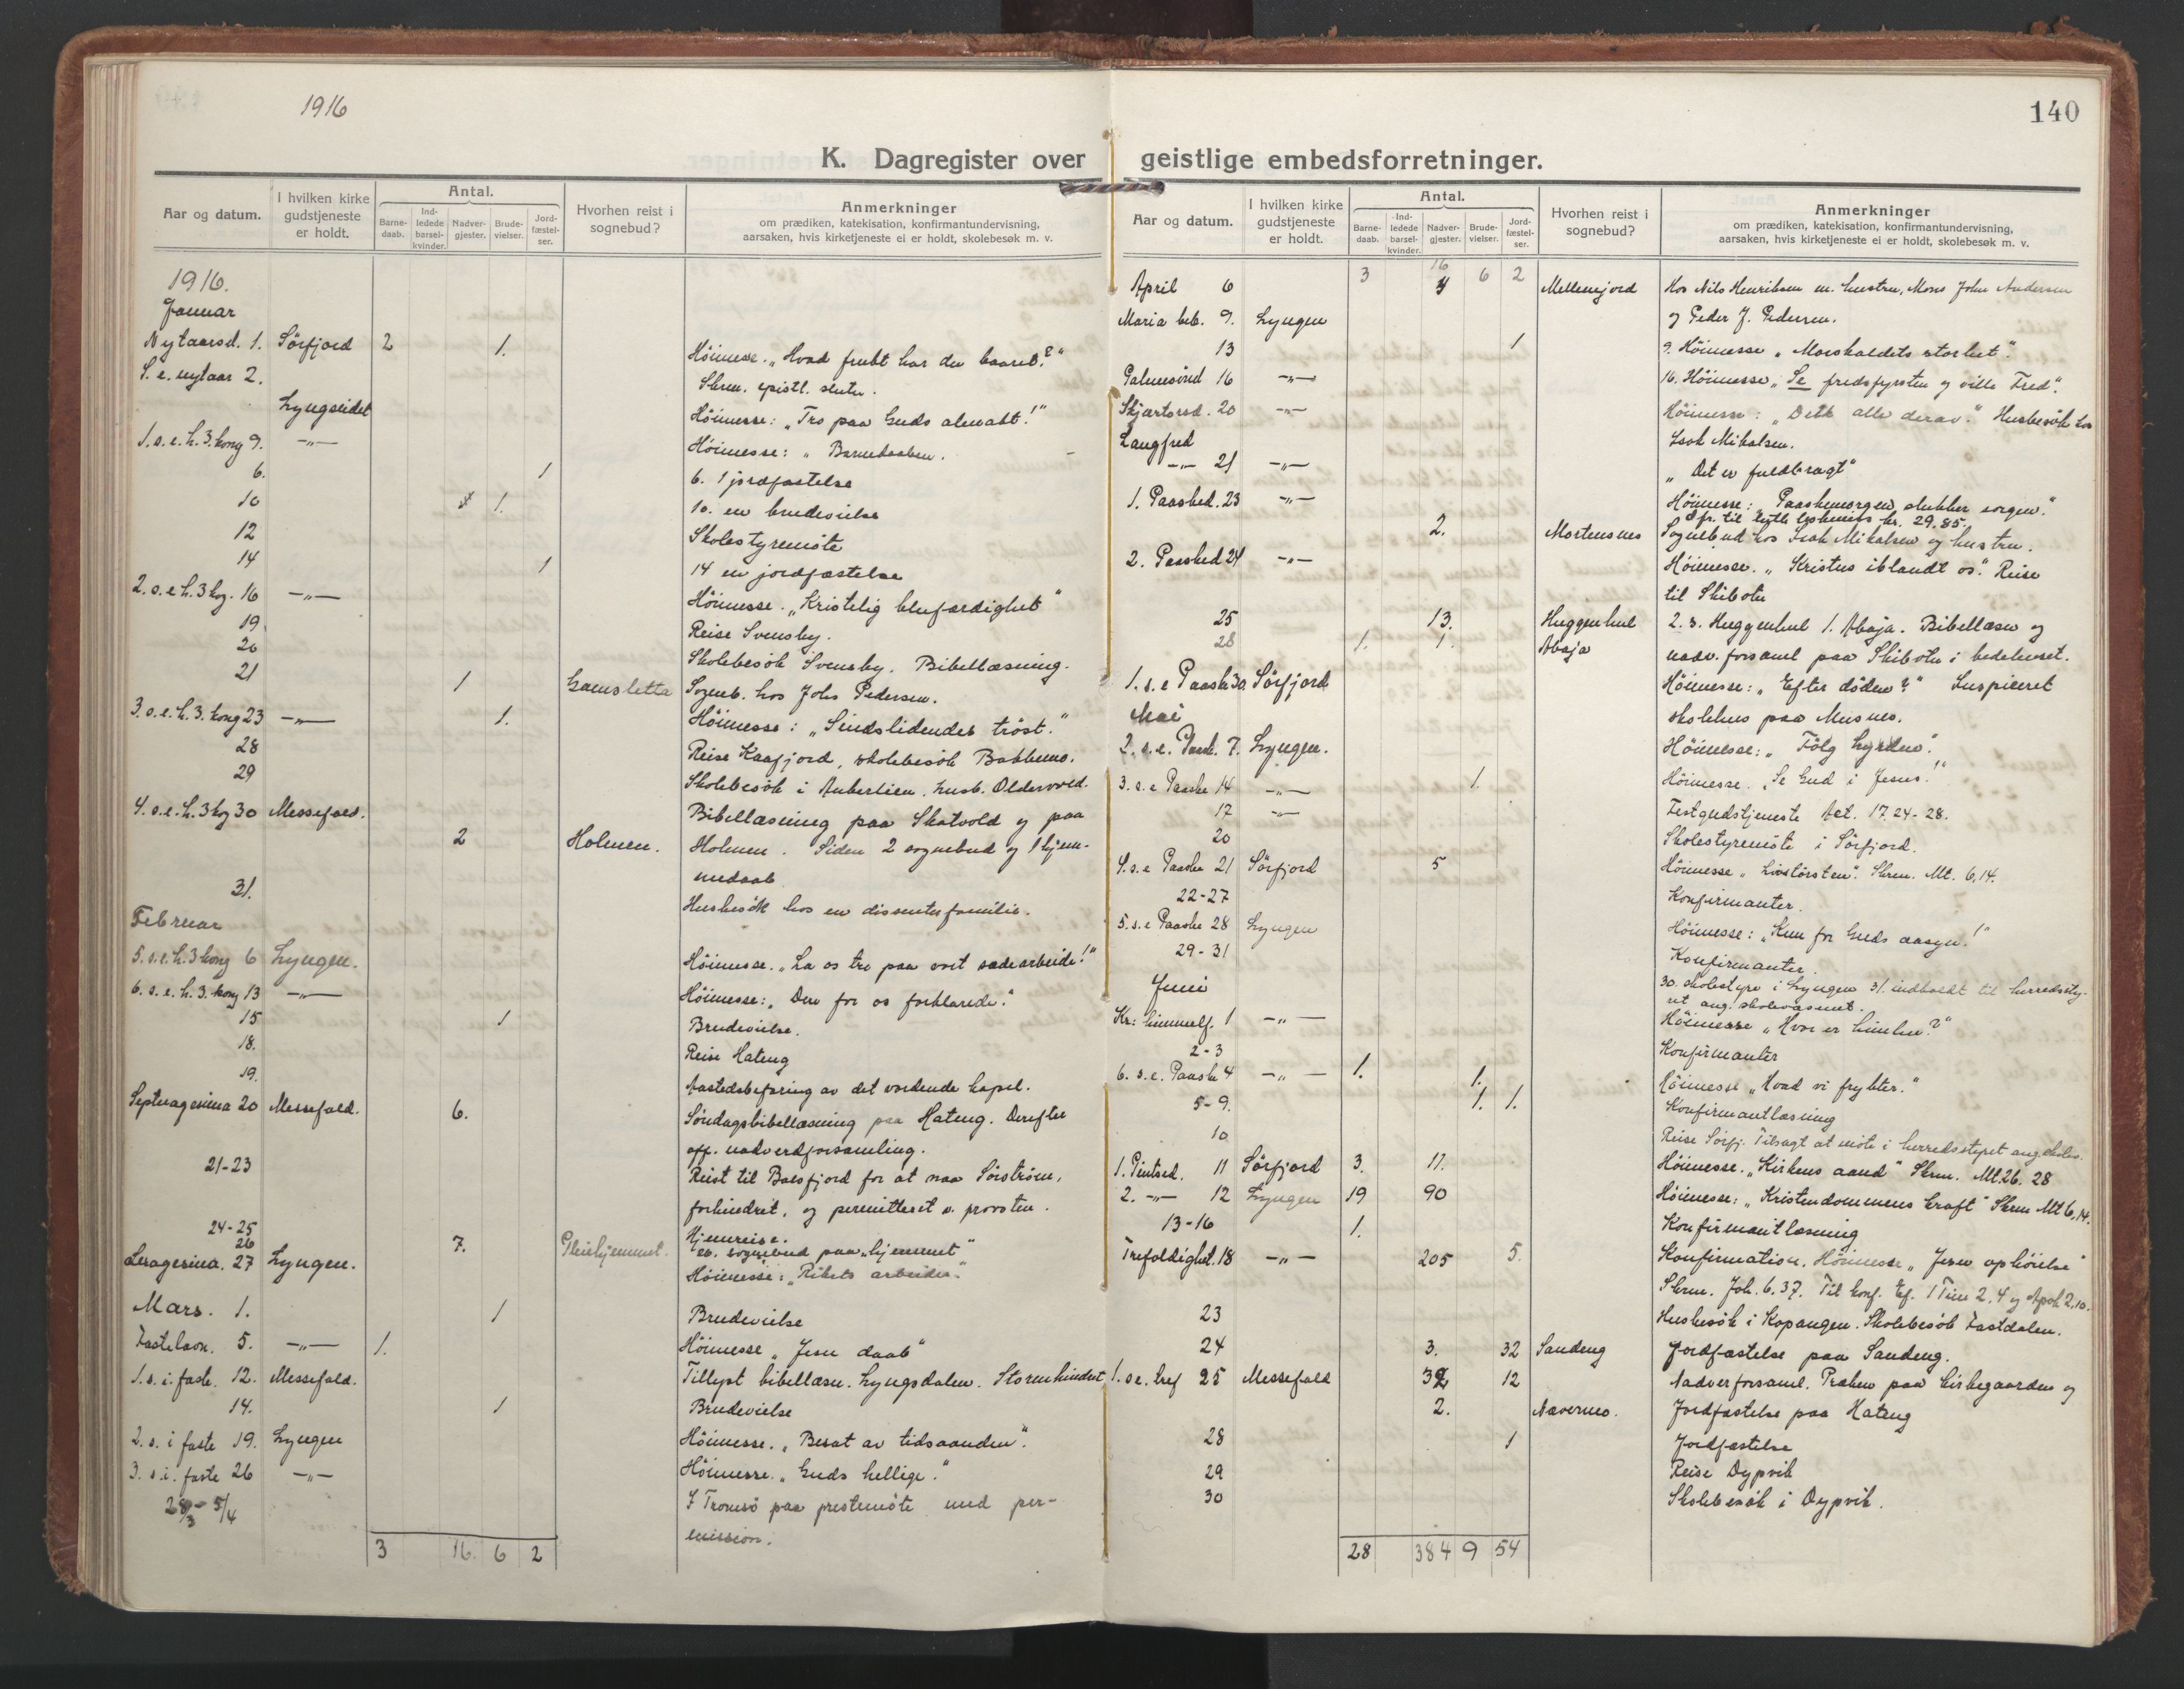 1916
140
K. Dagregister over geistlige embedsforretninger.
Aar og datum. I hvilken kirke gudstjeneste er holdt. Antal. Barne-daab. Ind-ledede barsel-kvinder. Nadver-gjester. Brude-vielser. Jord-fæstel-ser. Hvorhen reist i sognebud? Anmerkninger om prædiken, katekisation, konfirmantundervisning, aarsaken, hvis kirketjeneste ei er holdt, skolebesøk m. v.
1916.
Januar
Nytaarsd. 1. Sörfjord 2 1. Höimesse. "Hvad frukt har du baaret?"
S. e. nytaar 2. Skrm. epistl. slutn.
Lyngseidet Höimesse: "Tro paa Guds almakt!"
1. s. e. h. 3. kong 9. -"- Höimesse: "Barnedaaben.
6. 1 6. 1 jordfæstelse
10 1. 10. en brudevielse
12 Skolestyremöte
14 1 14 en jordfæstelse
2. s. e h. 3 kg. 16 -"- Höimesse. "Kristelig blufærdighet"
19 Reise Svensby.
20 Skolebesök Svensby. Bibellæsning.
21 1 Gamsletta Sogneb. hos Johs Pedersen.
3. s. e. h. 3. kong 23 -"- 1. Höimesse: "Sindslidendes tröst."
28 Reise Kaafjord, skolebesök Bakkemo.
29 Skolebesök i Ankerlien. Husb. Oldervold.
4. s. e. h. 3 kg 30 Messefald. Bibellæsning paa Skatvold og paa
2 Holmen. Holmen. Siden 2 sognebud og 1 hjem-
medaab
31. Husbesök hos en dissenterfamilie.
Februar
5. s. e. h. 3 kong 6 Lyngen. Höimesse. "La os tro paa vort sædearbeide!"
6. s. e. h. 3. kong 13 -"- Höimesse: "Den for os forklarede."
15 1 Brudevielse.
18. Reise Hateng
19. Aastedsbefaring av det vordende kapel.
Septuagesima 20 Messefald. 6. Söndagsbibellæsning paa Hateng. Derefter
off. nadverdforsamling.
21-23 Reist til Balsfjord for at naa Sörström,
forhindret, og permitteret v. provsten.
24-25 Hjemreise.
26 7. Pleiehjemmet. eb. sognebud paa "hjemmet"
Sexagesima. 27 Lyngen. Höimesse: "Rikets arbeider."
Mars. 1. 1 Brudevielse
Fastelavn. 5. -"- 1. Höimesse "Jesu daab"
1. s. i. faste. 12. Messefald. Tillyst bibellæsn. Lyngsdalen. Stormhindret
14. 1 Brudevielse
2. s. i faste 19. Lyngen Höimesse. "Besat av tidsaanden".
3. s. i. faste 26 -"- Höimesse. "Guds hellige."
28/3 - 5/4 I Tromsö paa prestemöte med per-
mission.
3 16. 6 2
Aar og datum. I hvilken kirke gudstjeneste er holdt. Antal. Barne-daab. Ind-ledede barsel-kvinder. Nadver-gjester. Brude-vielser. Jord-fæstel-ser. Hvorhen reist i sognebud? Anmerkninger om prædiken, katekisation, konfirmantundervisning, aarsaken, hvis kirketjeneste ei er holdt, skolebesøk m. v.
3 16 6 2
April 6 4 Mellenjord Hos Nils Henriksen m. hustru, Mons John Andersen
Maria beb. 9. Lyngen og Peder J. Pedersen.
13 1 9. Höimesse "Morskaldets storhet".
Palmesönd 16 -"- 16. Höimesse "Se fredsfyrsten og ville Fred".
Skjærtorsd. 20 -"- Höimesse: "Drik alle derav." Husbesök hos
Langfred Isak Mikalsen.
-"- 21 -"- "Det er fuldbragt"
1. Paasked. 23 -"- Höimesse: "Paaskemorgen slukker sorgen."
Ofr. til kr. 29.85.
2. Mortensnes Sognebud hos Isak Mikalsen og hustru.
2. Paasked 24 -"- Höimesse. "Kristus iblandt os." Reise
til Skibotn
25 13. Huggenhul 2. 3. Huggenhul 1. Abaja. Bibellæsn og
28 1. 1. Abaja nadv. forsaml paa Skibotn i bedehuset.
1. s. e Paaske 30. Sörfjord Höimesse: "Efter döden?" Inspiceret
Mai skolehus paa Musnes.
2. s. e. Paask. 7. Lyngen. Höimesse: "Fölg hyrden".
3. s. e Paaske 14 -"- 1. Höimesse. "Se Gud i Jesus!"
17 -"- Festgudstjeneste Act. 17.24-28.
20 Skolestyremöte i Sörfjord.
4. s. e Paaske 21 Sörfjord 5 Höimesse "Livstörsten". Skrm. Mt. 6,14.
22-27 Konfirmanter.
5. s. e Paaske 28 Lyngen Höimesse: "Kun for Guds aasyn!"
29-31 Konfirmanter.
Juni 30. skolestyre i Lyngen 31. indkaldt til herredssty-
ret ang. skolevæsenet.
Kr: himmelf. 1 -"- Höimesse "Hvor er himlen?"
2-3 Konfirmanter
6. s. e. Paaske 4 -"- 1. 1. Höimesse "Hvad vi frykter."
5-9. 1. 1. Konfirmantlæsning
10 Reise Sörfj. Tilsagt at möte i herredsstyret ang skolev.
1. Pintsed. 11 Sörfjord 3. 11. Höimesse. "Kirkens aand" Skrm. Mt. 26. 28
2. -"- 12 Lyngen 19 90 Höimesse: "Kristendommens kraft" Skrm Mt 6,14.
13-16 1. Konfirmantlæsning
Trefoldighet. 18 -"- 205 5. Konfirmation. Höimesse "Jesu ophöielse"
Skrm. Joh. 6.37. Til konf. Ef. 1 Tim 2.4 og Apok 2,10.
23 Husbesök i Kopangen. Skolebesök Fastdalen.
24 3. 32 Sandeng Jordfæstelse paa Sandeng.
1. s. e. tref 25 Messefald 32 12 Nadverforsaml. Præken paa kirkegaarden og
2. Navernes. Jordfæstelse paa Hateng
28 1 Jordfæstelse
29 Reise Dypvik
30 Skolebesök i Dypvik.
28 384 9 54